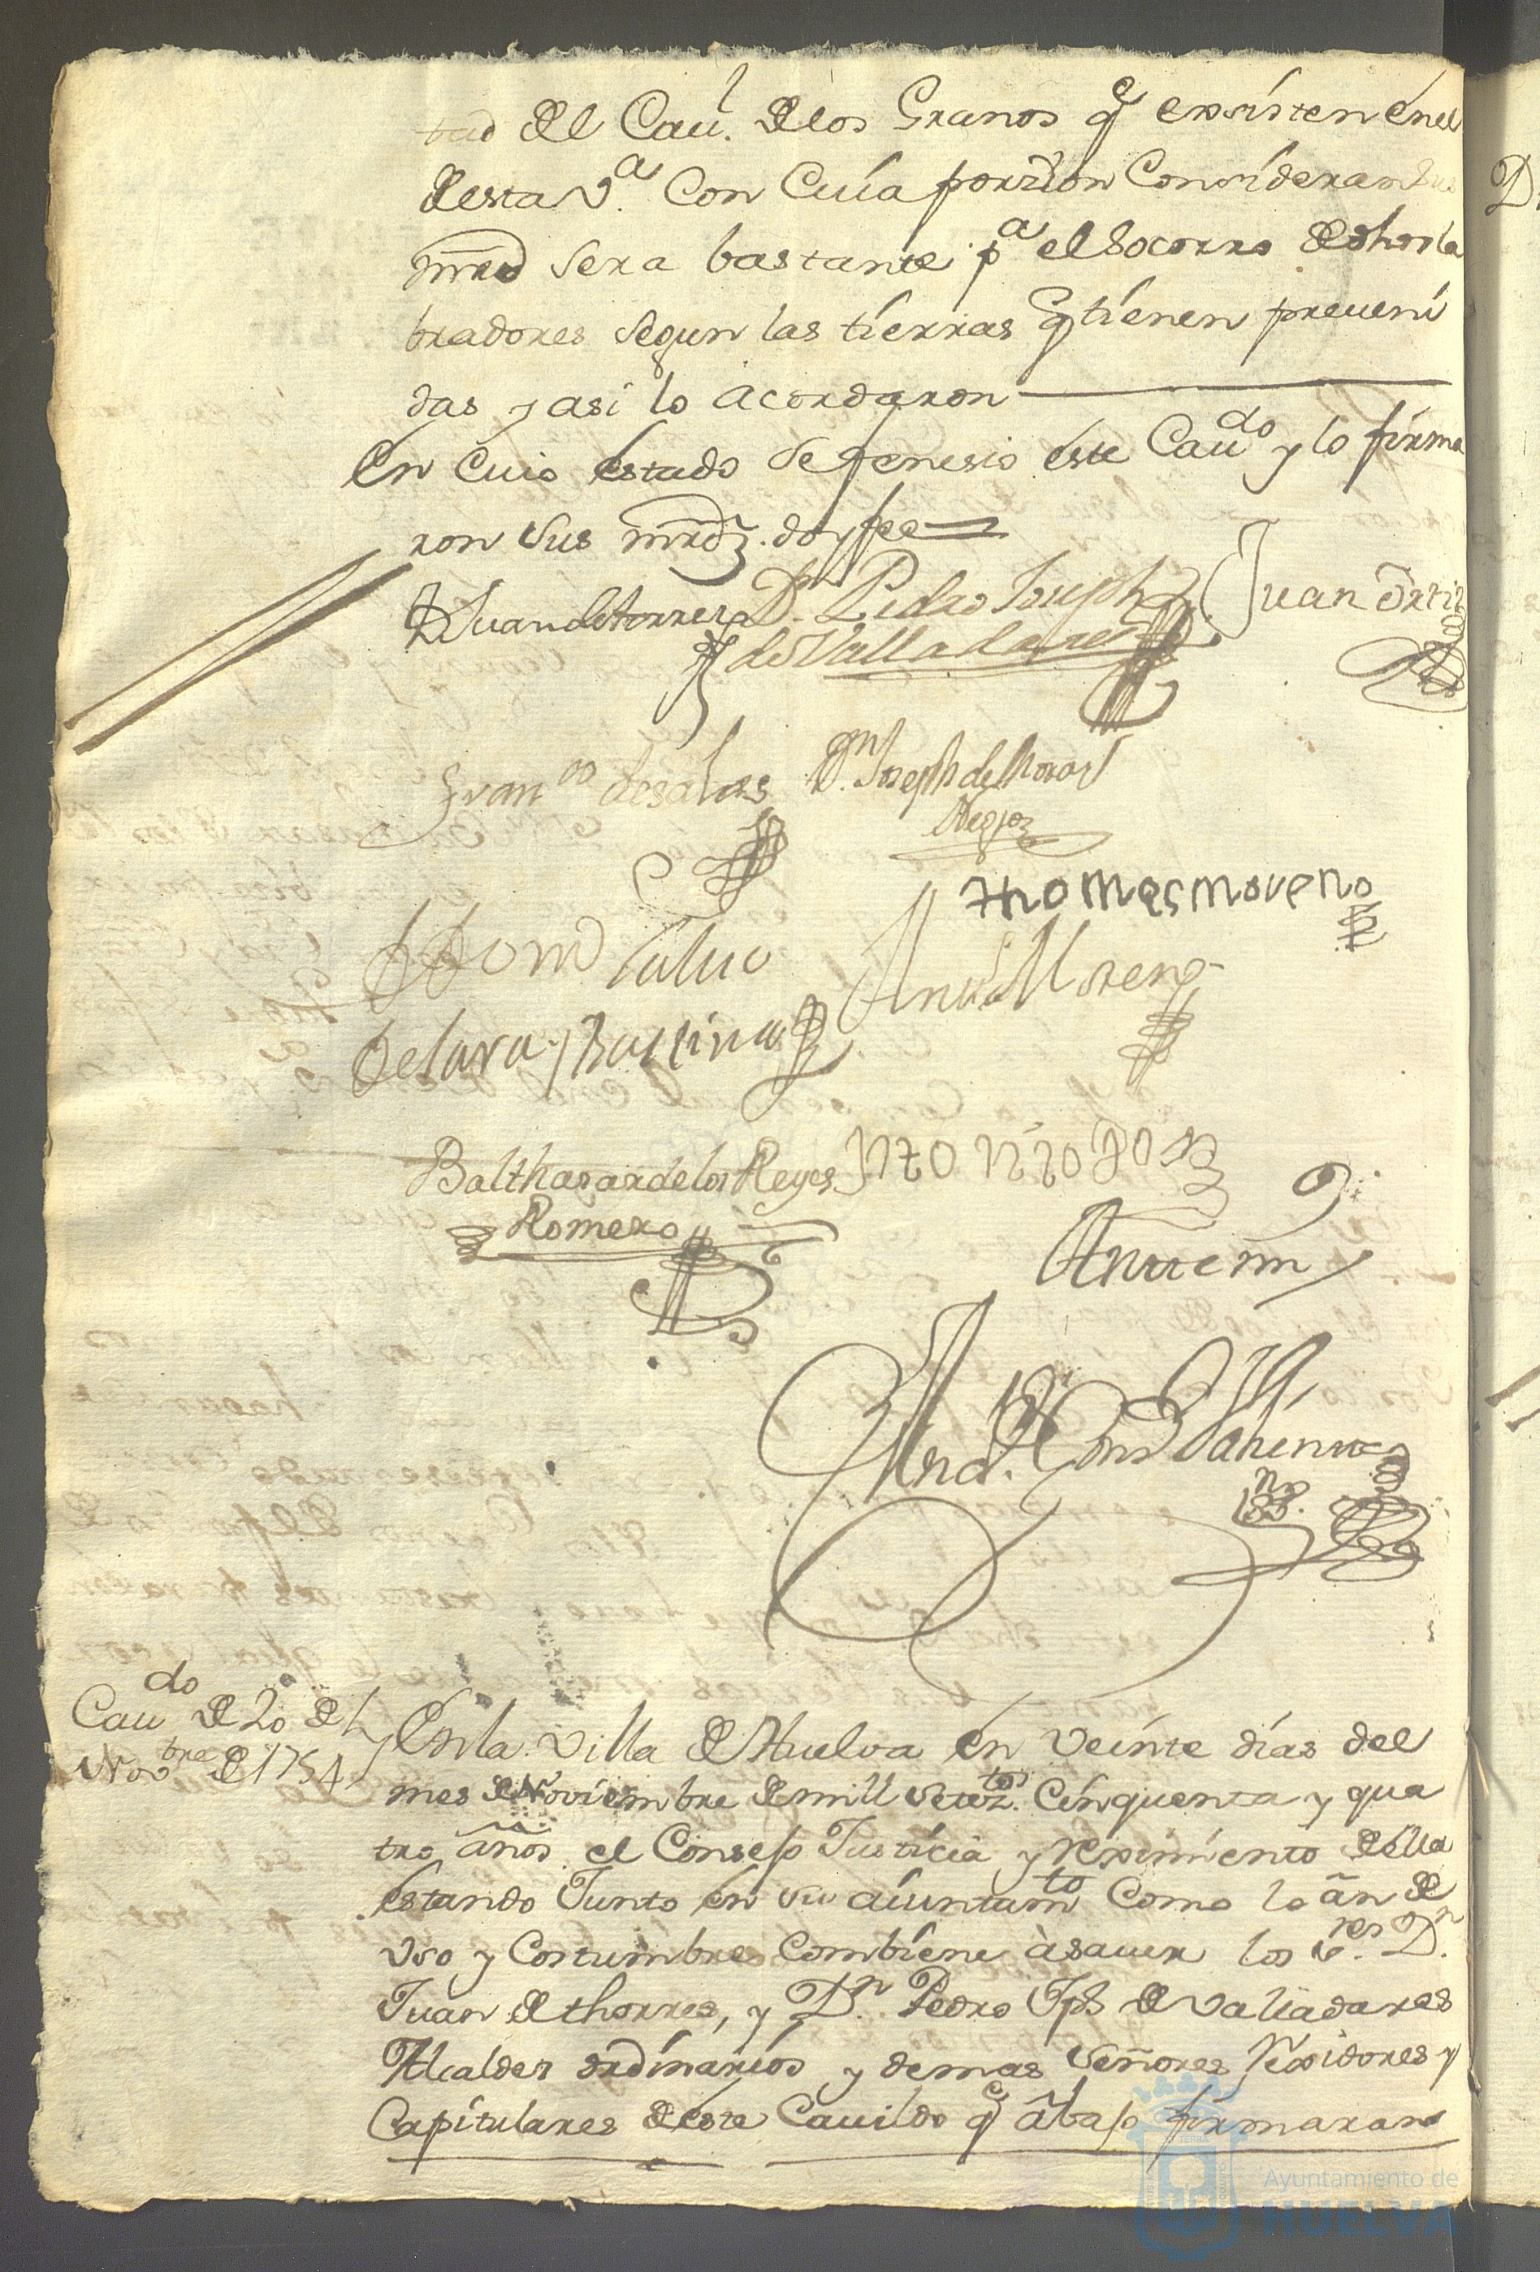 tad del Cau.l de los Granos q.e existen en el
desta V.a Con Cuia porzion Consideran sus
mrzd sera bastante p.a el Socorro de dhos la
bradores segun las tierras q tienen preveni
das y asi lo acordaron
En Cuio estado se fenesio este Cau.do y lo firma
ron sus mrzds. doy fee
D Juan de torres D.n Pedro Joseph
de Valladares
Juan Ortiz
Fran.co de salas
D.n Joseph de
thomas moreno
de lara y
Moreno
Balthasar de los Reyes
Romero
Antonio
Antte mi
Cau.do de 20 de
Nov.bre de 1754
En la villa de Huelva en veinte dias del
mes de Noviembre de mill setez.tos Cinquenta y qua
tro años el Consejo Justicia y reximiento de ella
estando Junto en su aiuntam.to Como lo an de
uso y Costumbre Combiene à saver los S.res D.n
Juan de thorres, y D.n Pedro Jph de valladares
Alcaldes ordinarios y demas Señores rexidores y
Capitulares de este Cavildo q.e abajo firmaran
Ayuntamiento de
HUELVA